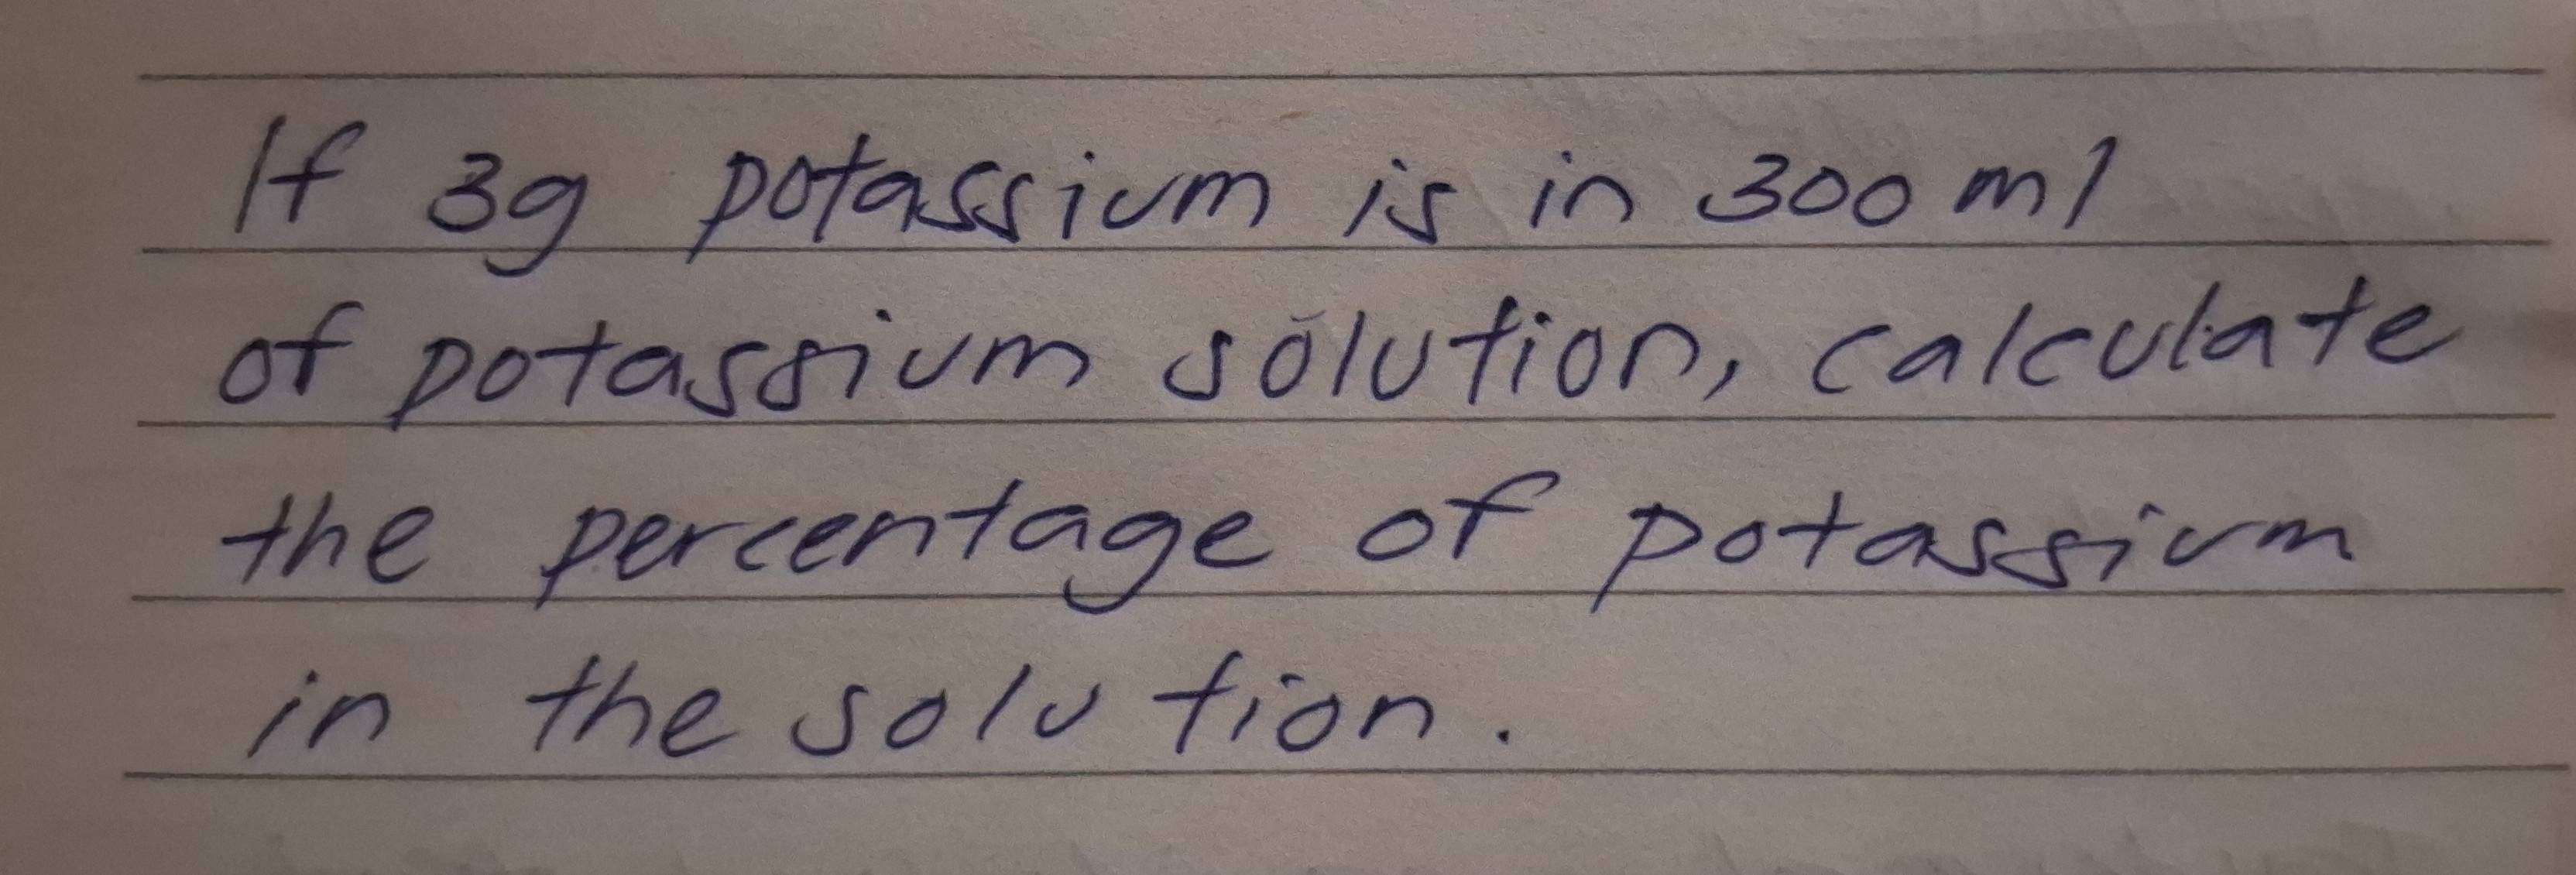 If 3g potassium is in 300 ml
of potassium solution, calculate
the percentage of potassium
in the solution.